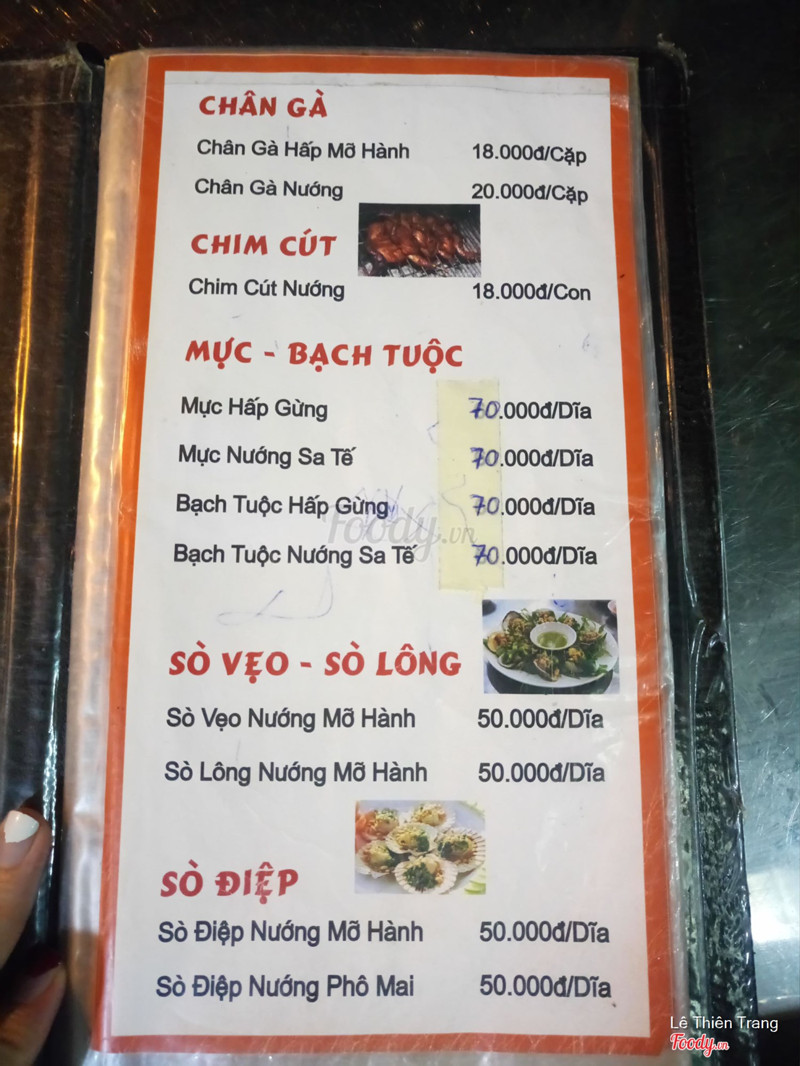 CHÂN GÀ
Chân Gà Hấp Mỡ Hành 18.000đ/Cặp
Chân Gà Nướng 20.000đ/Cặp
CHIM CÚT
Chim Cút Nướng 18.000đ/Con
MỰC - BẠCH TUỘC
Mực Hấp Gừng 70.000đ/Dĩa
Mực Nướng Sa Tế 70.000đ/Dĩa
Bạch Tuộc Hấp Gừng 70.000đ/Dĩa
Foody.vn
Bạch Tuộc Nướng Sa Tế 70.000đ/Dĩa
SÒ VẸO - SÒ LÔNG
Sò Vẹo Nướng Mỡ Hành 50.000đ/Dĩa
Sò Lông Nướng Mỡ Hành 50.000đ/Dĩa
SÒ ĐIỆP
Sò Điệp Nướng Mỡ Hành 50.000đ/Dĩa
Sò Điệp Nướng Phô Mai 50.000đ/Dĩa
Lê Thiên Trang
Foody.vn